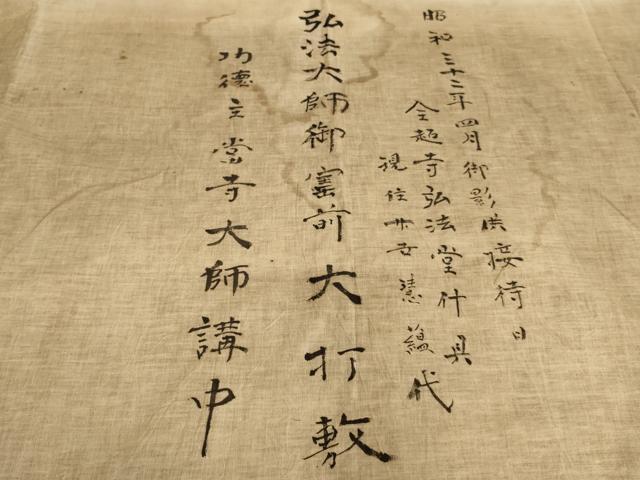 昭和三十二年四月御影供接待日
全超寺弘法堂什具
現住廿五慧蘊代
弘法大師御宝前大打敷
功徳主当寺大師講中